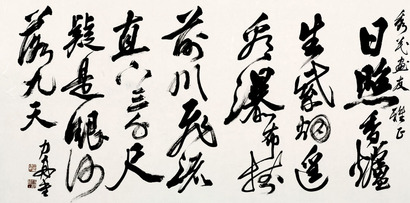 畫友雅正
日照香爐
生紫烟遥
看瀑布掛
前川飛流
直下三千尺
疑是銀河
落九天